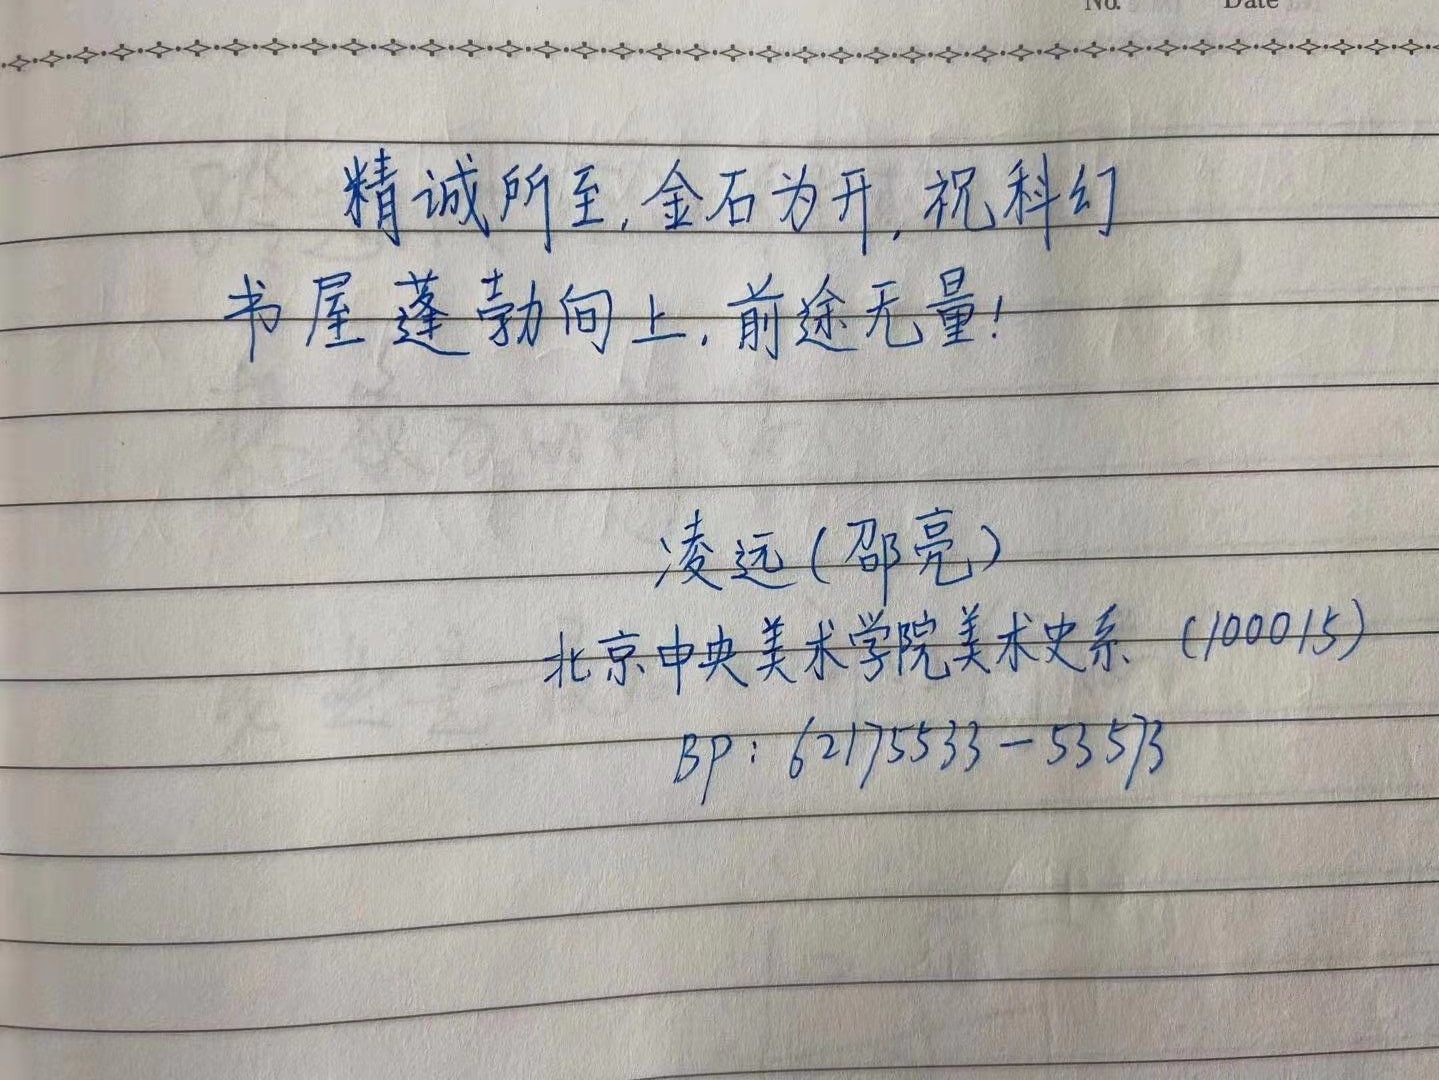 No. Date
精诚所至,金石为开,祝科幻
书屋蓬勃向上,前途无量!
凌远(邵亮)
北京中央美术学院美术史系 (100015)
BP: 62175533-53573